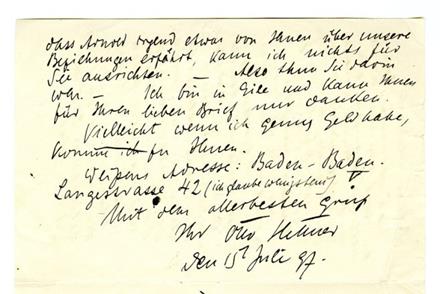 dass Arnold irgend etwas von Ihnen über unsere
Beziehungen erfährt, kann ich nichts für
Sie ausrichten. — Also thun Sie darin
— Ich bin in Eile und kann Ihnen
für Ihren lieben Brief nur danken.
Vielleicht wenn ich genug Geld habe,
komme ich zu Ihnen.
Adresse: Baden-Baden.
Langestrasse 42 (ich glaube wenigstens)
Mit dem allerbesten Gruß
Ihr Otto Hettner
den 15 Juli 97.